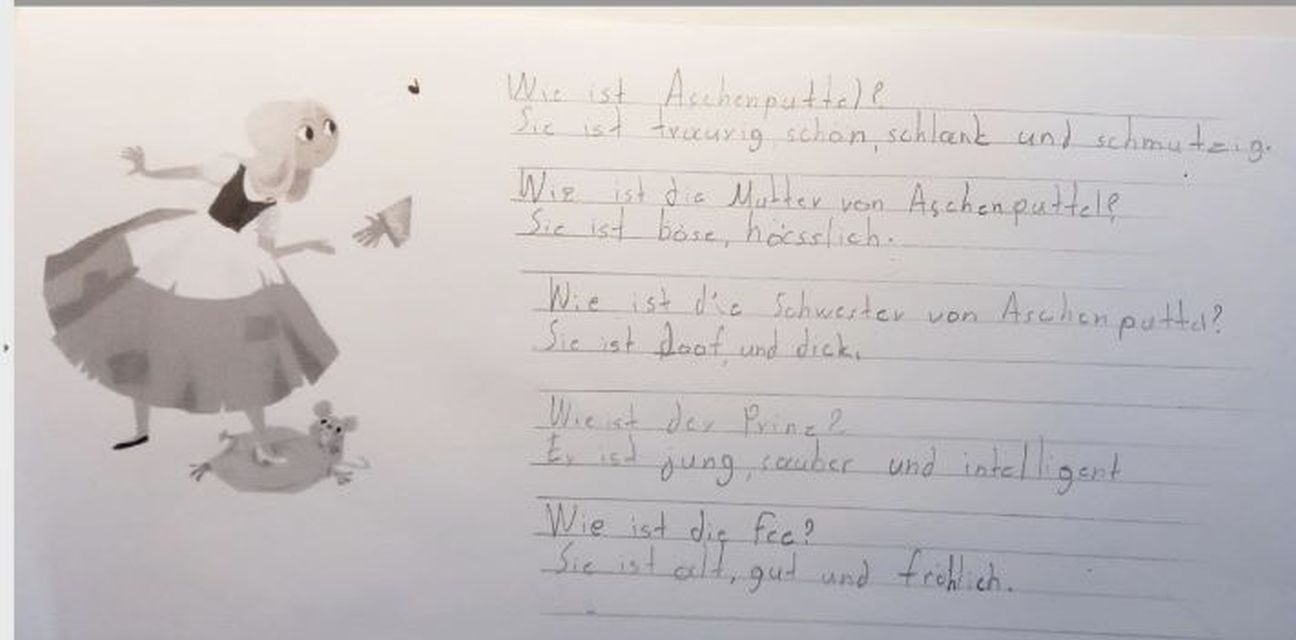 Wie ist Aschenputtel?
Sie ist traurig, schön, schlank und schmutzig.
Wie ist die Mutter von Aschenputtel?
Sie ist böse, hässlich.
Wie ist die Schwester von Aschenputtel?
Sie ist doof, und dick.
Wie ist der Prinz?
Er ist jung, sauber und intelligent
Wie ist die Fee?
Sie ist alt, gut und fröhlich.